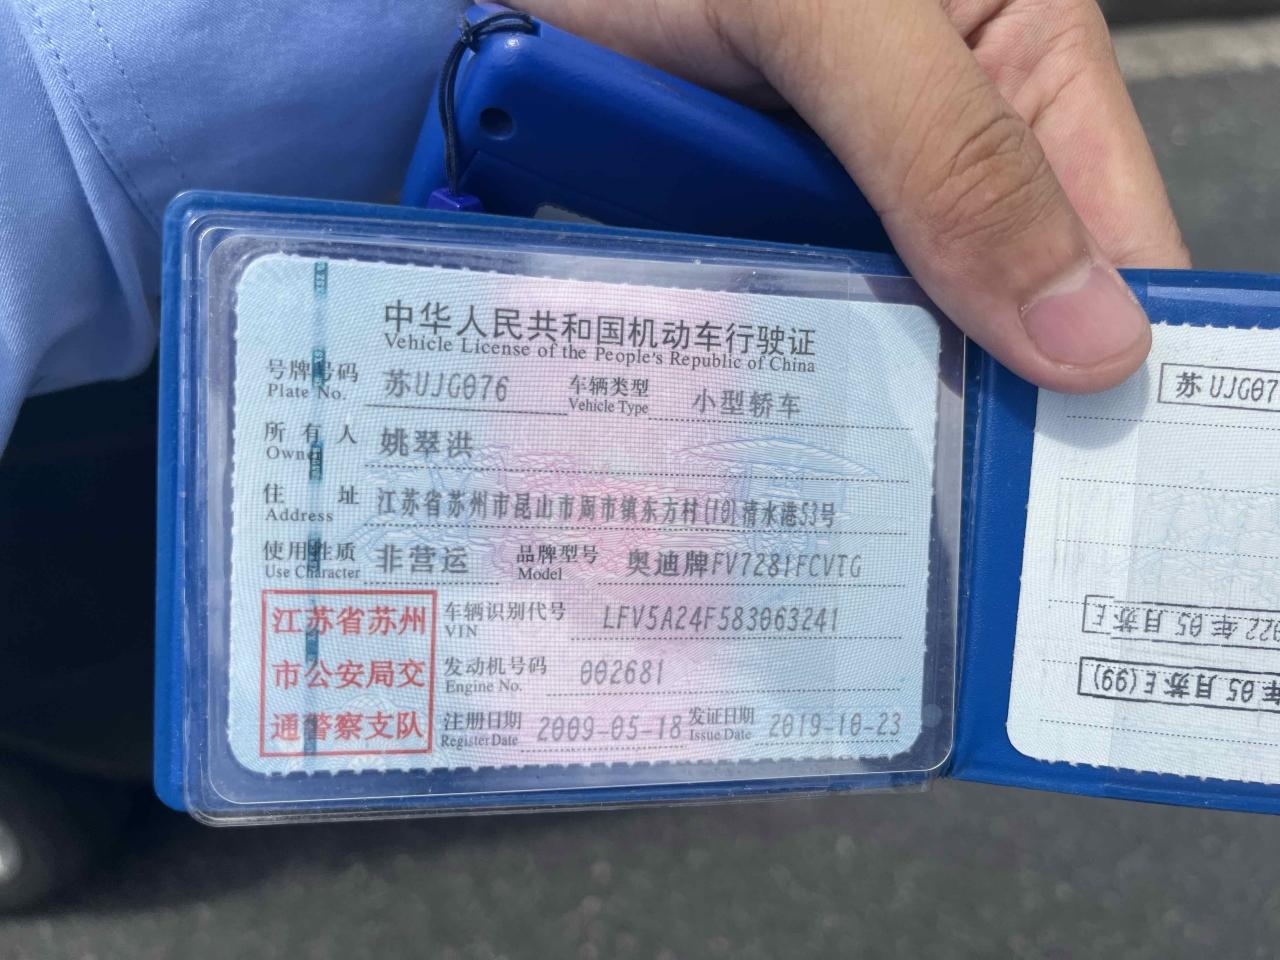 中华人民共和国机动车行驶证
Vehicle License of the People's Republic of China
号牌号码 苏UJG076 车辆类型 小型轿车
Plate No. Vehicle Type
所有人 姚翠洪
Owner
住址 江苏省苏州市昆山市周市镇东方村(10)清水港53号
Address
使用性质 非营运 品牌型号 奥迪牌FV7281FCVTG
Use Character Model
江苏省苏州市公安局交通警察支队
车辆识别代号 LFV5A24F583063241
VIN
发动机号码 002681
Engine No.
注册日期 2009-05-18 发证日期 2019-10-23
Register Date Issue Date
苏UJG07
022年05月苏E
年05月苏E(99)